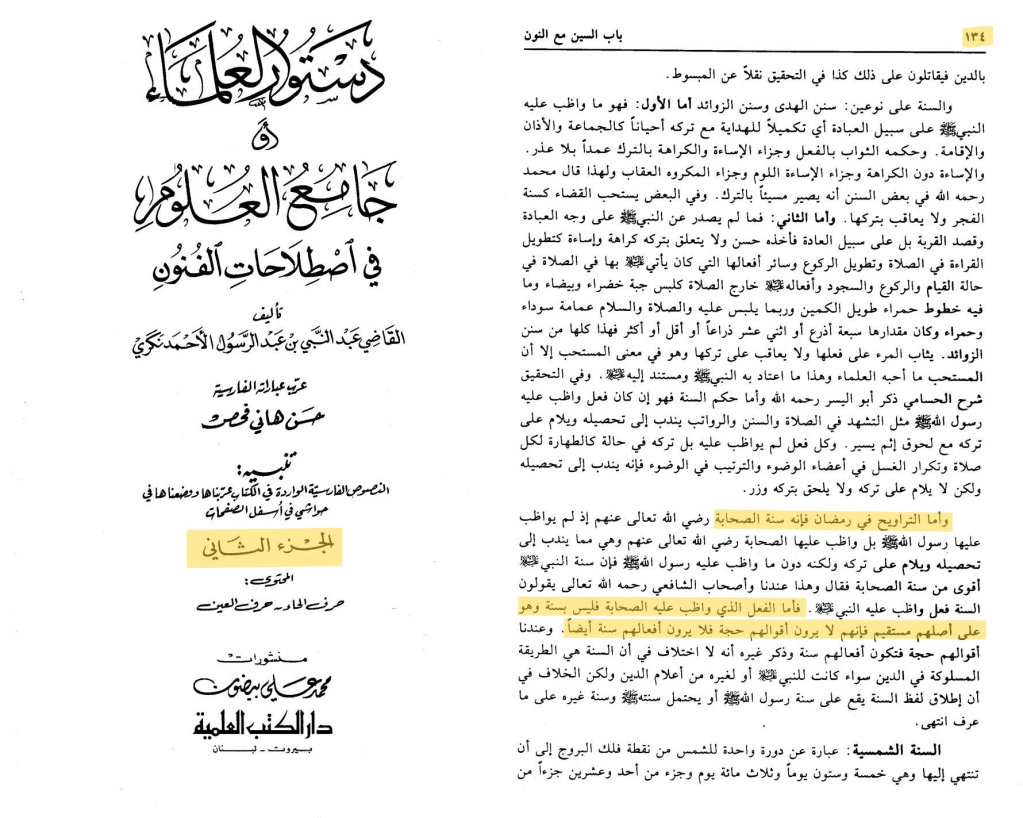 دستور العلماء
أو
جامع العلوم
في اصطلاحات الفنون
تأليف
القاضي عبد النبي بن عبد الرسول الأحمد نكري
عرب عباراته الفارسية
حسن هاني فحص
تنبيه:
النصوص الفارسية الواردة في الكتاب عربناها ووضعناها في
حواشي في أسفل الصفحات
الجزء الثاني
المحتوى:
حرف الحاء - حرف العين
منشورات
محمد علي بيضون
دار الكتب العلمية
بيروت - لبنان
١٣٤
باب السين مع النون
بالدين فيقاتلون على ذلك كذا في التحقيق نقلاً عن المبسوط.
والسنة على نوعين: سنن الهدى وسنن الزوائد أما الأول: فهو ما واظب عليه
النبيﷺ على سبيل العبادة أي تكميلاً للهداية مع تركه أحياناً كالجماعة والأذان
والإقامة. وحكمه الثواب بالفعل وجزاء الإساءة والكراهة بالترك عمداً بلا عذر.
والإساءة دون الكراهة وجزاء الإساءة اللوم وجزاء المكروه العقاب ولهذا قال محمد
رحمه الله في بعض السنن أنه يصير مسيئاً بالترك. وفي البعض يستحب القضاء كسنة
الفجر ولا يعاقب بتركها. وأما الثاني: فما لم يصدر عن النبيﷺ على وجه العبادة
وقصد القربة بل على سبيل العادة فأخذه حسن ولا يتعلق بتركه كراهة وإساءة كتطويل
القراءة في الصلاة وتطويل الركوع وسائر أفعالها التي كان يأتيﷺ بها في الصلاة في
حالة القيام والركوع والسجود وأفعالهﷺ خارج الصلاة كلبس جبة خضراء وبيضاء وما
فيه خطوط حمراء طويل الكمين وربما يلبس عليه والصلاة والسلام عمامة سوداء
وحمراء وكان مقدارها سبعة أذرع أو اثني عشر ذراعاً أو أقل أو أكثر فهذا كلها من سنن
الزوائد. يثاب المرء على فعلها ولا يعاقب على تركها وهو في معنى المستحب إلا أن
المستحب ما أحبه العلماء وهذا ما اعتاد به النبيﷺ ومستند إليهﷺ. وفي التحقيق
شرح الحسامي ذكر أبو اليسر رحمه الله وأما حكم السنة فهو إن كان فعل واظب عليه
رسول اللهﷺ مثل التشهد في الصلاة والسنن والرواتب يندب إلى تحصيله ويلام على
تركه مع لحوق إثم يسير. وكل فعل لم يواظب عليه بل تركه في حالة كالطهارة لكل
صلاة وتكرار الغسل في أعضاء الوضوء والترتيب في الوضوء فإنه يندب إلى تحصيله
ولكن لا يلام على تركه ولا يلحق بتركه وزر.
وأما التراويح في رمضان فإنه سنة الصحابة رضي الله تعالى عنهم إذ لم يواظب
عليها رسول اللهﷺ بل واظب عليها الصحابة رضي الله تعالى عنهم وهي مما يندب إلى
تحصيله ويلام على تركه ولكنه دون ما واظب عليه رسول اللهﷺ فإن سنة النبيﷺ
أقوى من سنة الصحابة فقال وهذا عندنا وأصحاب الشافعي رحمه الله تعالى يقولون
السنة فعل واظب عليه النبيﷺ. فأما الفعل الذي واظب عليه الصحابة فليس بسنة وهو
على أصلهم مستقيم فإنهم لا يرون أقوالهم حجة فلا يرون أفعالهم سنة أيضاً. وعندنا
أقوالهم حجة فتكون أفعالهم سنة وذكر غيره أنه لا اختلاف في أن السنة هي الطريقة
المسلوكة في الدين سواء كانت للنبيﷺ أو لغيره من أعلام الدين ولكن الخلاف في
أن إطلاق لفظ السنة يقع على سنة رسول اللهﷺ أو يحتمل سنتهﷺ وسنة غيره على ما
عرف انتهى.
السنة الشمسية: عبارة عن دورة واحدة للشمس من نقطة فلك البروج إلى أن
تنتهي إليها وهي خمسة وستون يوماً وثلاث مائة يوم وجزء من أحد وعشرين جزءاً من